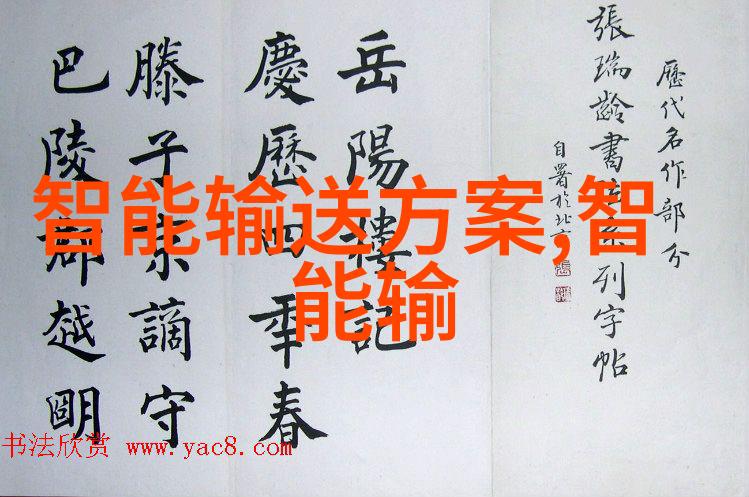 歷代名作部分
張瑞齡書法系列字帖
自署於北京
岳陽樓記
慶歷四年春
滕子京謫守
巴陵郡越明
智能输送方案,智
能输
书法欣赏 www.yac8.com